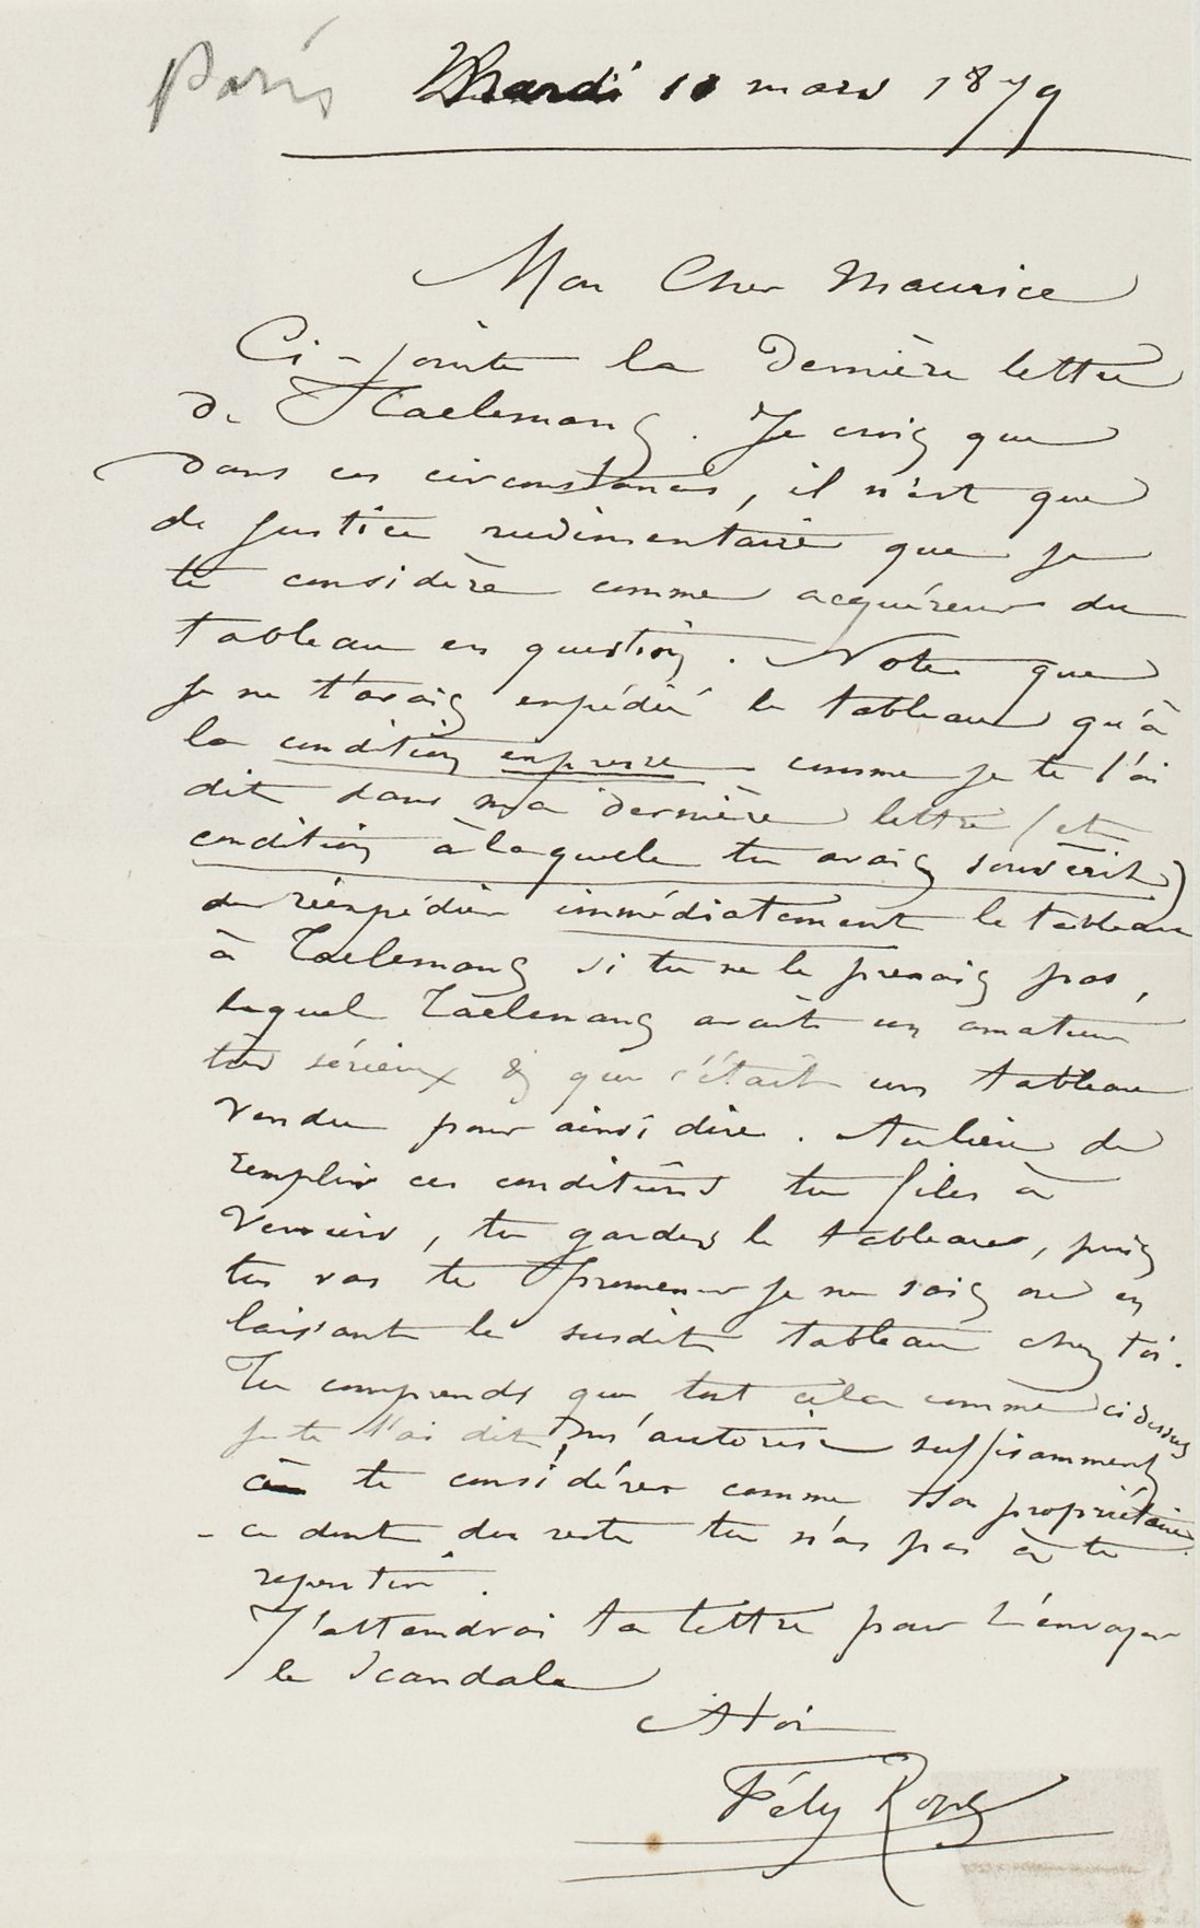 Paris Mardi 11 mars 1879
Mon Cher Maurice
Ci-jointe la dernière lettre
de Taelemans. Je crois que
dans ces circonstances, il n'est que
de justice rudimentaire que je
te considère comme acquéreur du
tableau en question. Note que
je ne t'avais expédié le tableau qu'à
la condition expresse comme je te l'ai
dit dans ma dernière lettre (et
condition à laquelle tu avais souscrit)
de réexpédier immédiatement le tableau
à Taelemans si tu ne le prenais pas,
lequel Taelemans avait un amateur
très sérieux & que c'était un tableau
vendu pour ainsi dire. Au lieu de
remplir ces conditions tu files à
, tu gardes le tableau, puis
tu vas te promener je ne sais où en
laissant le susdit tableau chez toi.
Tu comprends que tout cela comme ci dessus
je te l'ai dit, m'autorise suffisamment
à te considérer comme son propriétaire
- ce dont du reste tu n'as pas à te
repentir.
J'attendrai ta lettre pour t'envoyer
le Scandale
A toi
Fély Rops